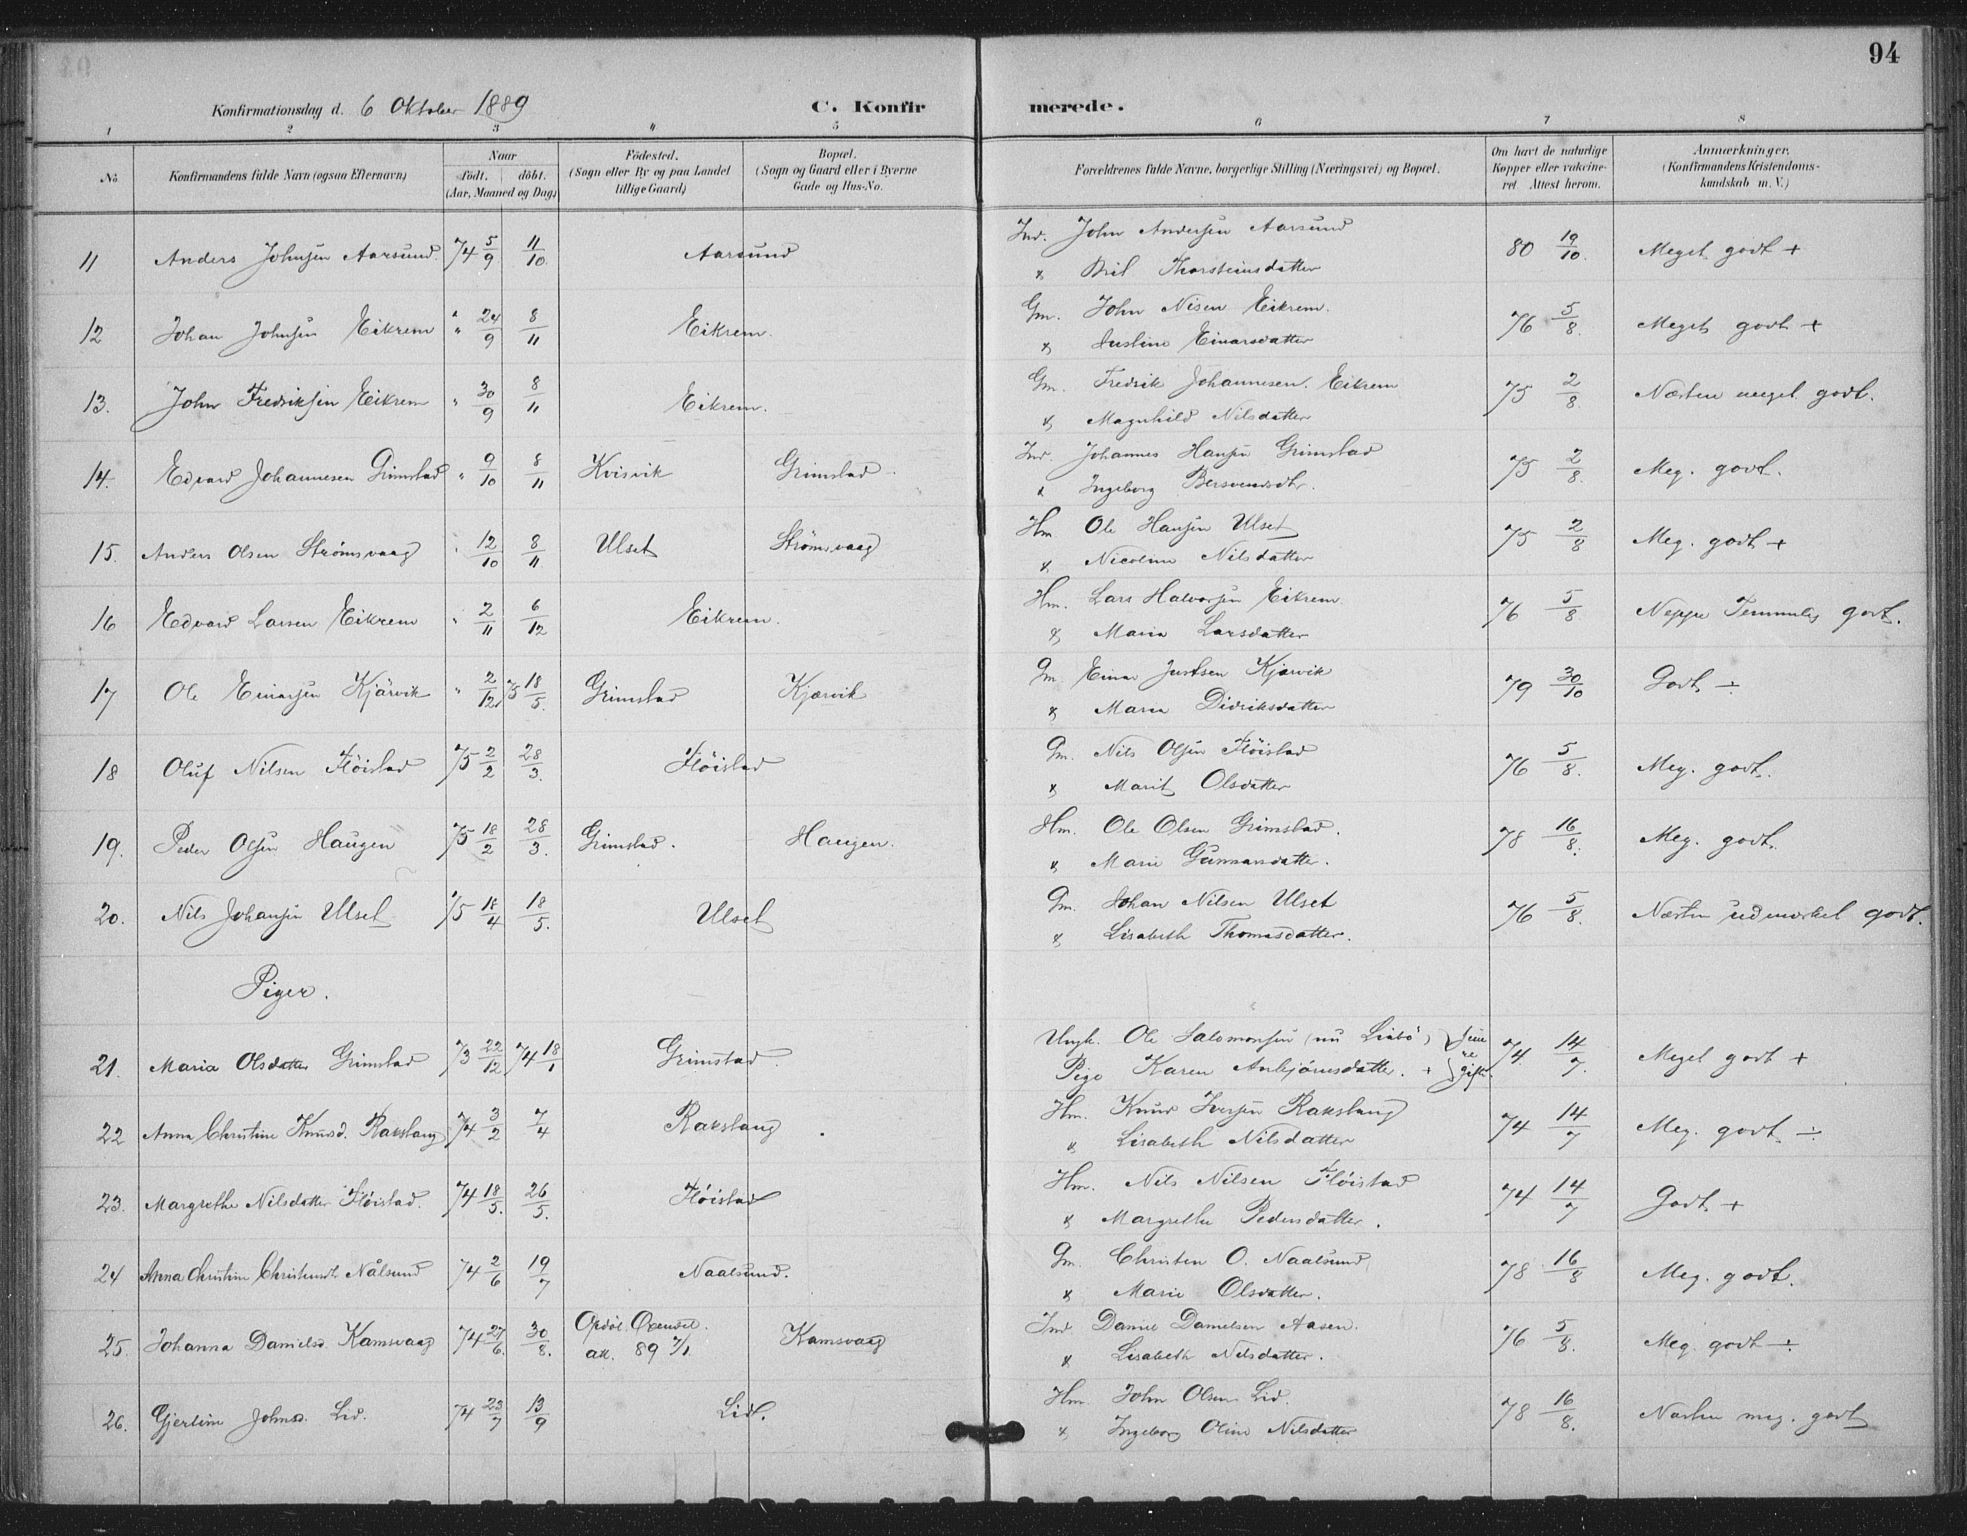 94
Konfirmationsdag d. 6 Oktober 1889 C. Konfirmerede.
1 2 3 4 5 6 7 8
No Konfirmandens fulde Navn (ogsaa Efternavn) Naar födt. döbt. (Aar, Maaned og Dag) Födested. (Sogn eller By og paa Landet tillige Gaard) Bopæl. (Sogn og Gaard eller i Byerne Gade og Hus-No. Forældrenes fulde Navne, borgerlige Stilling (Næringsvei) og Bopæl. Om havt de naturlige Kopper eller vakcineret Attest herom. Anmærkninger. (Konfirmandens Kristendomskundskab m. V.)
11 Anders Johnsen Aarsund. 74 5/9 11/10. Aarsund Ind. John Andersen Aarsund 80 19/10. Meget godt +
& Brit Thorsteinsdatter
12 Johan Johnsen Eikrem " 24/9 8/11 Eikrem. Gm. John Nisen Eikrem. 76 5/8. Meget godt +
& Justine Einarsdatter
13. John Fredriksen Eikrem " 30/9 8/11 Eikrem. Gm. Fredrik Johannesen. Eikrem 75 2/8. Næsten meget godt.
& Magnhild Nilsdatter
14. Edvard Johannesen Grimstad " 9/10 8/11 Kvisvik Grimstad. Ind. Johannes Hansen Grimstad 75 2/8. Meg. godt.
& Ingeborg Bersvendsdtr.
15. Anders Olsen Strömsvaag " 12/10 8/11 Ulset Strömsvaag Hm Ole Hansen Ulset 75 2/8 Meg. godt +
& Nicoline Nilsdatter
16 Edvard Larsen Eikrem " 2/11 6/12 Eikrem. Hm. Lars Halvorsen Eikrem 76 5/8 Neppe Temmelig godt.
& Maria Larsdatter
17 Ole Einarsen Kjärvik " 2/12 75 18/5. Grimstad Kjærvik Gm. Einar Justsen Kjærvik 79 30/10 Godt ÷
& Maria Didriksdatter
18 Oluf Nilsen Flöistad 75 2/2 28/3. Flöistad Gm. Nils Olsen Flöistad 76 5/8. Meg. godt.
& Marit Olsdatter
19. Peder Olsen Haugen 75 18/2 28/3. Grimstad. Haugen. Hm. Ole Olsen Grimstad. 78 16/8. Meg. godt.
& Marie Gunnarsdatter.
20. Nils Johansen Ulset 75 18/4 18/5. Ulset Gm. Johan Nilsen Ulset 76 5/8. Næsten udmærket godt.
& Lisabeth Thomasdatter.
Piger.
21. Maria Olsdatter Grimstad 73 22/12 74 18/1 Grimstad. Ungk. Ole Salomonsen (nu Lisbö) 74. 14/7. Meget godt +
Pige Karen Anbjörnsdatter. +
22 Anna Christine Knusd. Rakstang 74 3/2 7/4 Rakstang Hm. Knud Iversen Rakstang 74 14/7 Meg. godt ÷
& Lisabeth Nilsdatter
23. Margrethe Nilsdatter Flöistad. 74 18/5. 26/5. Flöistad Hm. Nils Nilsen Flöistad 74 14/7 Godt +
& Margrethe Pedersdatter.
24 Anna Christine Christensdt Nålsund 74 2/6 19/7 Naalsund. Gm. Christen O. Naalsund 78 16/8 Meg. godt.
& Marie Olsdatter.
25. Johanna Danielsd Kamsvaag 74 27/6. 30/8. Opdöl. Öxendal. Kamsvaag Ind Daniel Danielsen Aasen. 76 5/8. Meg. godt ÷
att. 89 7/1. & Lisabeth Nilsdatter.
26. Gjertine Johnsd. Lid. 74 23/7 13/9 Lid. Hm. John Olsen Lid. 78 16/8. Næsten meg. godt
& Ingeborg Oline Nilsdatter